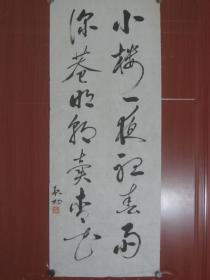 小楼一夜听春雨
深巷明朝卖杏花